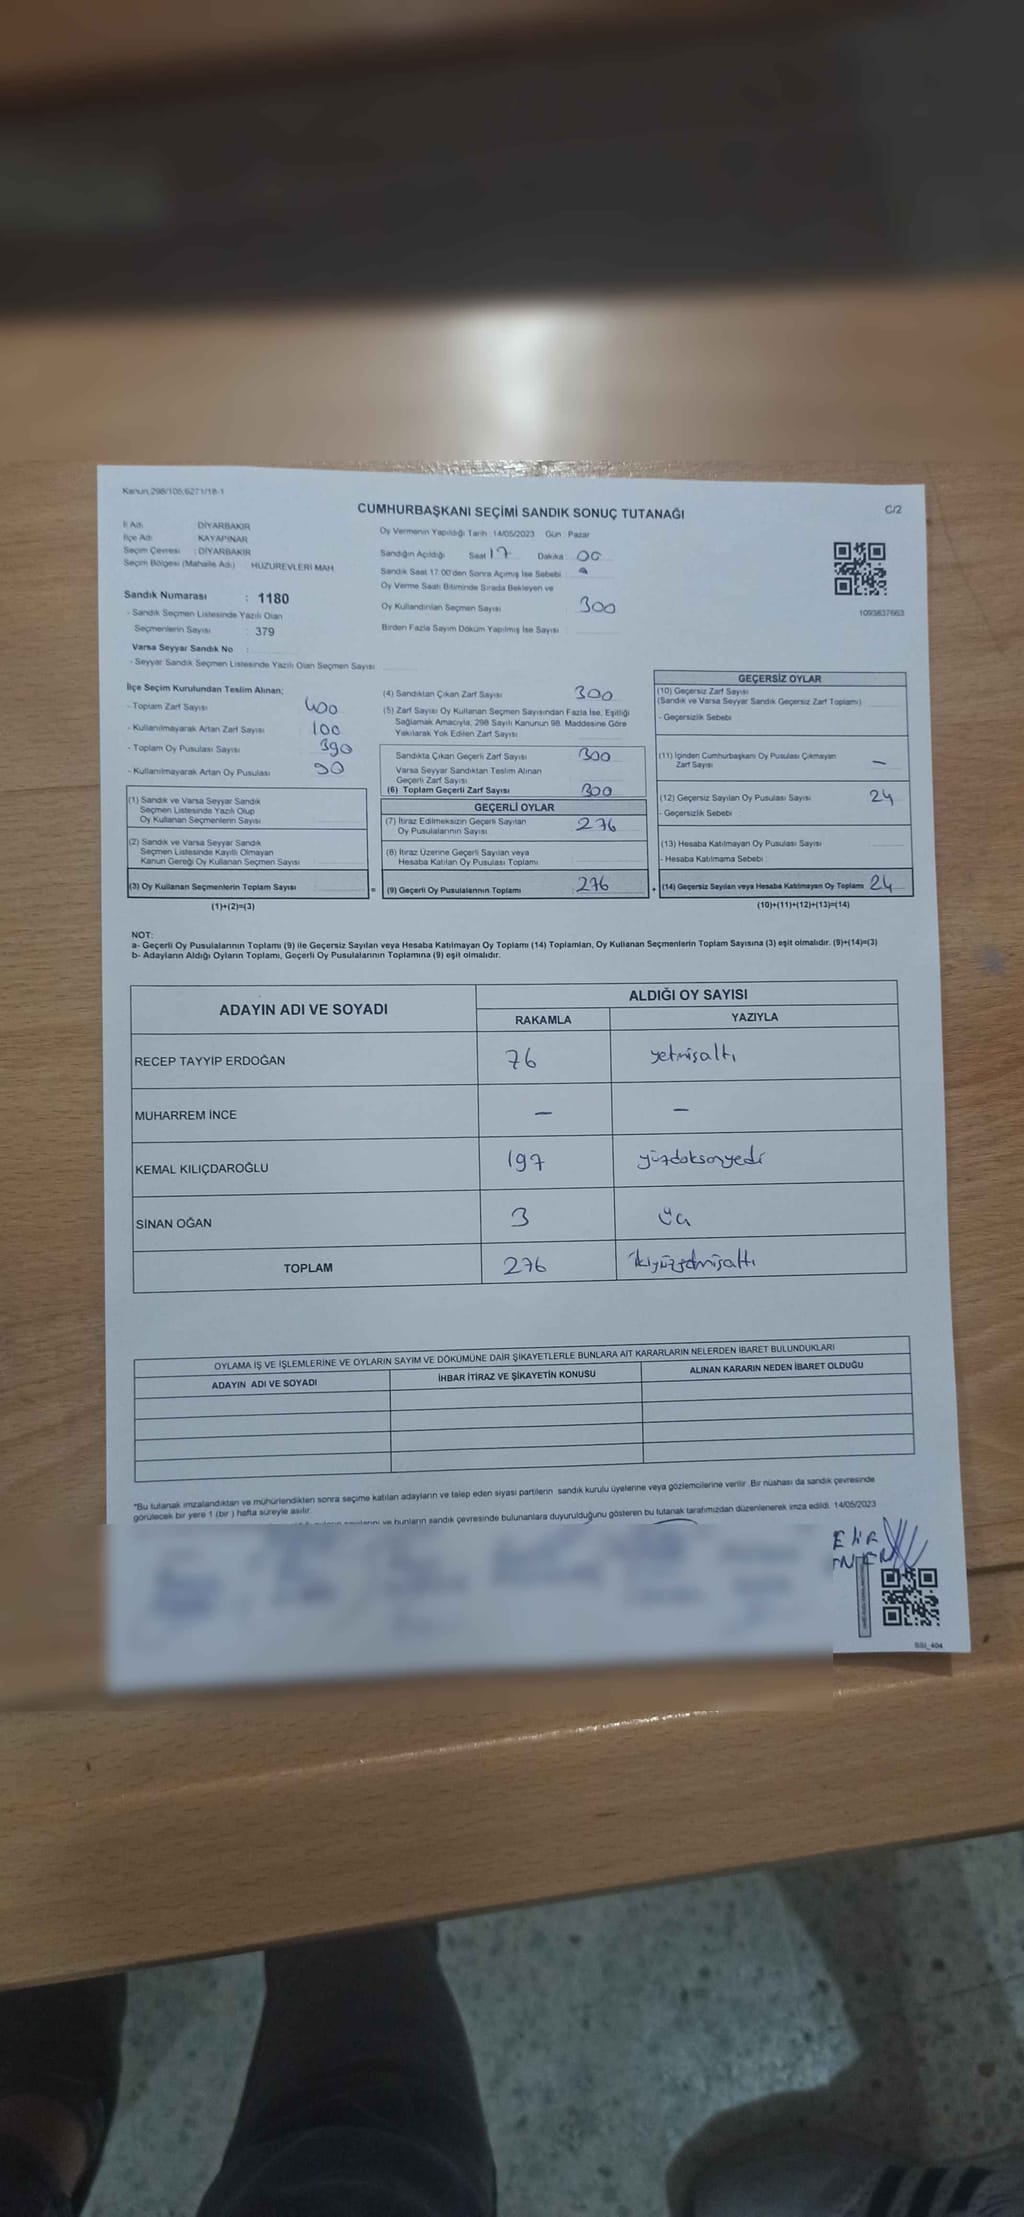 Kanun.298/105,6271/18-1
C/2
CUMHURBAŞKANI SEÇİMİ SANDIK SONUÇ TUTANAĞI
İl Adı DİYARBAKIR
İlçe Adı KAYAPINAR
Seçim Çevresi : DİYARBAKIR
Seçim Bölgesi (Mahalle Adı) HUZUREVLERİ MAH
Sandık Numarası : 1180
- Sandık Seçmen Listesinde Yazılı Olan
Seçmenlerin Sayısı : 379
Varsa Seyyar Sandık No :
- Seyyar Sandık Seçmen Listesinde Yazılı Olan Seçmen Sayısı
Oy Vermenin Yapıldığı Tarih : 14/05/2023 Gün : Pazar
Sandığın Açıldığı Saat 17 Dakika 00
Sandık Saat 17:00'den Sonra Açımış İse Sebebi
Oy Verme Saati Bitiminde Sırada Bekleyen ve
Oy Kullandırılan Seçmen Sayısı 300
Birden Fazla Sayım Döküm Yapılmış İse Sayısı :
1093837663
İlçe Seçim Kurulundan Teslim Alınan;
- Toplam Zarf Sayısı 400
- Kullanılmayarak Artan Zarf Sayısı 100
- Toplam Oy Pusulası Sayısı 390
- Kullanılmayarak Artan Oy Pusulası 90
(1) Sandık ve Varsa Seyyar Sandık
Seçmen Listesinde Yazılı Olup
Oy Kullanan Seçmenlerin Sayısı
(2) Sandık ve Varsa Seyyar Sandık
Seçmen Listesinde Kayıtlı Olmayan
Kanun Gereği Oy Kullanan Seçmen Sayısı
(3) Oy Kullanan Seçmenlerin Toplam Sayısı
(1)+(2)=(3)
(4) Sandıktan Çıkan Zarf Sayısı 300
(5) Zarf Sayısı Oy Kullanan Seçmen Sayısından Fazla İse, Eşitliği
Sağlamak Amacıyla, 298 Sayılı Kanunun 98. Maddesine Göre
Yakılarak Yok Edilen Zarf Sayısı
Sandıkta Çıkan Geçerli Zarf Sayısı 300
Varsa Seyyar Sandıktan Teslim Alınan
Geçerli Zarf Sayısı
(6) Toplam Geçerli Zarf Sayısı 300
GEÇERLİ OYLAR
(7) İtiraz Edilmeksizin Geçerli Sayılan
Oy Pusulalarının Sayısı 276
(8) İtiraz Üzerine Geçerli Sayılan veya
Hesaba Katılan Oy Pusulası Toplamı
= (9) Geçerli Oy Pusulalarının Toplamı 276
GEÇERSİZ OYLAR
(10) Geçersiz Zarf Sayısı
(Sandık ve Varsa Seyyar Sandık Geçersiz Zarf Toplamı)
- Geçersizlik Sebebi
(11) İçinden Cumhurbaşkanı Oy Pusulası Çıkmayan
Zarf Sayısı —
(12) Geçersiz Sayılan Oy Pusulası Sayısı 24
- Geçersizlik Sebebi
(13) Hesaba Katılmayan Oy Pusulası Sayısı
- Hesaba Katılmama Sebebi
+ (14) Geçersiz Sayılan veya Hesaba Katılmayan Oy Toplamı 24
(10)+(11)+(12)+(13)=(14)
NOT:
a- Geçerli Oy Pusulalarının Toplamı (9) ile Geçersiz Sayılan veya Hesaba Katılmayan Oy Toplamı (14) Toplamları, Oy Kullanan Seçmenlerin Toplam Sayısına (3) eşit olmalıdır. (9)+(14)=(3)
b- Adayların Aldığı Oyların Toplamı, Geçerli Oy Pusulalarının Toplamına (9) eşit olmalıdır.
ADAYIN ADI VE SOYADI
ALDIĞI OY SAYISI
RAKAMLA YAZIYLA
RECEP TAYYİP ERDOĞAN 76 yetmişaltı
MUHARREM İNCE — —
KEMAL KILIÇDAROĞLU 197 yüzdoksanyedi
SİNAN OĞAN 3 üç
TOPLAM 276 ikiyüzyetmişaltı
OYLAMA İŞ VE İŞLEMLERİNE VE OYLARIN SAYIM VE DÖKÜMÜNE DAİR ŞİKAYETLERLE BUNLARA AİT KARARLARIN NELERDEN İBARET BULUNDUKLARI
ADAYIN ADI VE SOYADI İHBAR İTİRAZ VE ŞİKAYETİN KONUSU ALINAN KARARIN NEDEN İBARET OLDUĞU
*Bu tutanak imzalandıktan ve mühürlendikten sonra seçime katılan adayların ve talep eden siyasi partilerin sandık kurulu üyelerine veya gözlemcilerine verilir. Bir nüshası da sandık çevresinde
görülecek bir yere 1 (bir ) hafta süreyle asılır.
ve bunların sandık çevresinde bulunanlara duyurulduğunu gösteren bu tutanak tarafımızdan düzenlenerek imza edildi. 14/05/2023